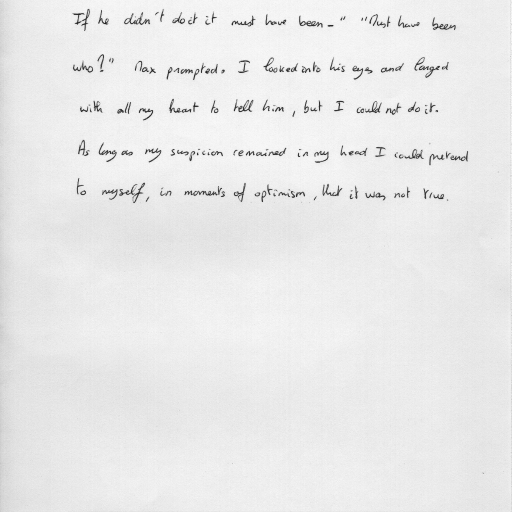 If he didn't do it it must have been-" "Must have been
who?" Max prompted. I looked into his eyes and longed
with all my heart to tell him, but I could not do it.
As long as my suspicion remained in my head I could pretend
to myself, in moments of optimism, that it was not true.